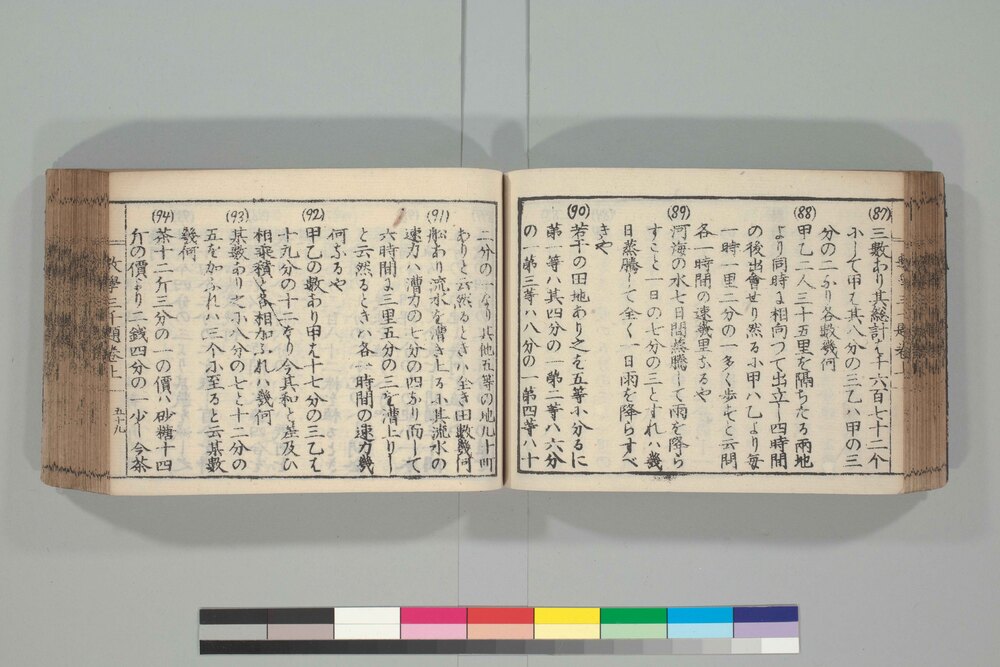 (87)
三數あり其総計を十六百七十二个
にして甲は其八分の三乙ハ甲の三
分の二なり各數幾何
(88)
甲乙二人三十五里を隔ちたる兩地
より同時に相向つて出立し四時間
の後出會せり然るに甲ハ乙より毎
一時一里二分の一多く歩むと云問
各一時間の速幾里なるや
(89)
河海の水七日間蒸騰して雨を降ら
すこと一日の七分の三とすれハ幾
日蒸騰して全く一日雨を降らすべ
きや
(90)
若干の田地あり之を五等に分るに
第一等ハ其四分の一第二等ハ六分
の一第三等ハ八分の一第四等ハ十
二分の一なり其他五等の地九十町
ありと云然るときハ全き田數幾何
(91)
舩あり流水を漕き上るに其流水の
速力ハ漕力の七分の四なり而して
六時間に三里五分の三を漕上りし
と云然るときハ各一時間の速力幾
何なるや
(92)
甲乙の數あり甲え十七分の三乙は
十九分の十二なり今其和と差及ひ
相乗積を各相加ふれハ幾何
(93)
某數あり之に八分の七と十二分の
五を加ふれハ三个に至ると云某數
幾何
(94)
茶十二斤三分の一の價ハ砂糖十四
斤の價より二錢四分の一少し今茶
數學三千題卷上
五十九